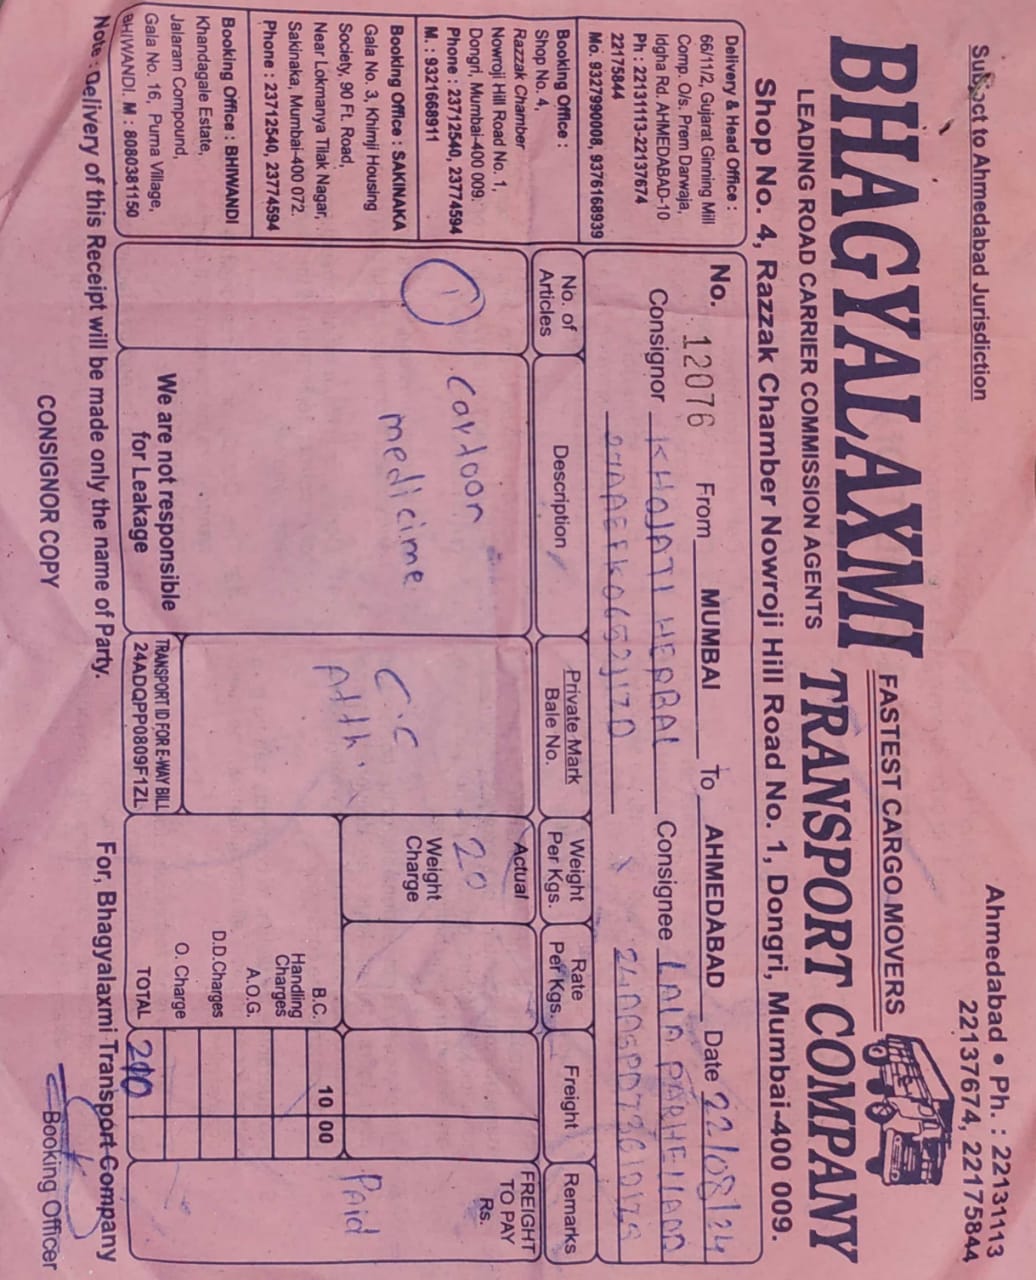 Subject to Ahmedabad Jurisdiction
Ahmedabad • Ph. : 22131113
22137674, 22175844
FASTEST CARGO MOVERS
BHAGYALAXMI TRANSPORT COMPANY
LEADING ROAD CARRIER COMMISSION AGENTS
Shop No. 4, Razzak Chamber Nowroji Hill Road No. 1, Dongri, Mumbai-400 009.
Delivery & Head Office :
66/11/2, Gujarat Ginning Mill
Comp. O/s. Prem Darwaja,
Idgha Rd. AHMEDABAD-10
Ph : 22131113-22137674
22175844
Mo. 9327990008, 9376168939
Booking Office :
Shop No. 4,
Razzak Chamber
Nowroji Hill Road No. 1,
Dongri, Mumbai-400 009.
Phone : 23712540, 23774594
M. : 9321668911
Booking Office : SAKINAKA
Gala No. 3, Khimji Housing
Society, 90 Ft. Road,
Near Lokmanya Tilak Nagar,
Sakinaka, Mumbai-400 072.
Phone : 23712540, 23774594
Booking Office : BHIWANDI
Khandagale Estate,
Jalaram Compound,
Gala No. 16, Purna Village,
BHIWANDI. M : 8080381150
No. 12076 From MUMBAI To AHMEDABAD Date 22/08/24
Consignor KHOJATI HERBAL Consignee LALA
No. of Articles Description Private Mark Bale No. Weight Per Kgs. Rate Per Kgs. Freight Remarks
1 Cartoon medicime
C.C
Actual
20
Weight Charge
FREIGHT TO PAY Rs.
Paid
B.C. 10 00
Handling Charges
A.O.G.
D.D.Charges
O. Charge
TOTAL 210
We are not responsible
for Leakage
TRANSPORT ID FOR E-WAY BILL
24ADQPP0809F1ZL
Note : Delivery of this Receipt will be made only the name of Party.
For, Bhagyalaxmi Transport Company
CONSIGNOR COPY
Booking Officer